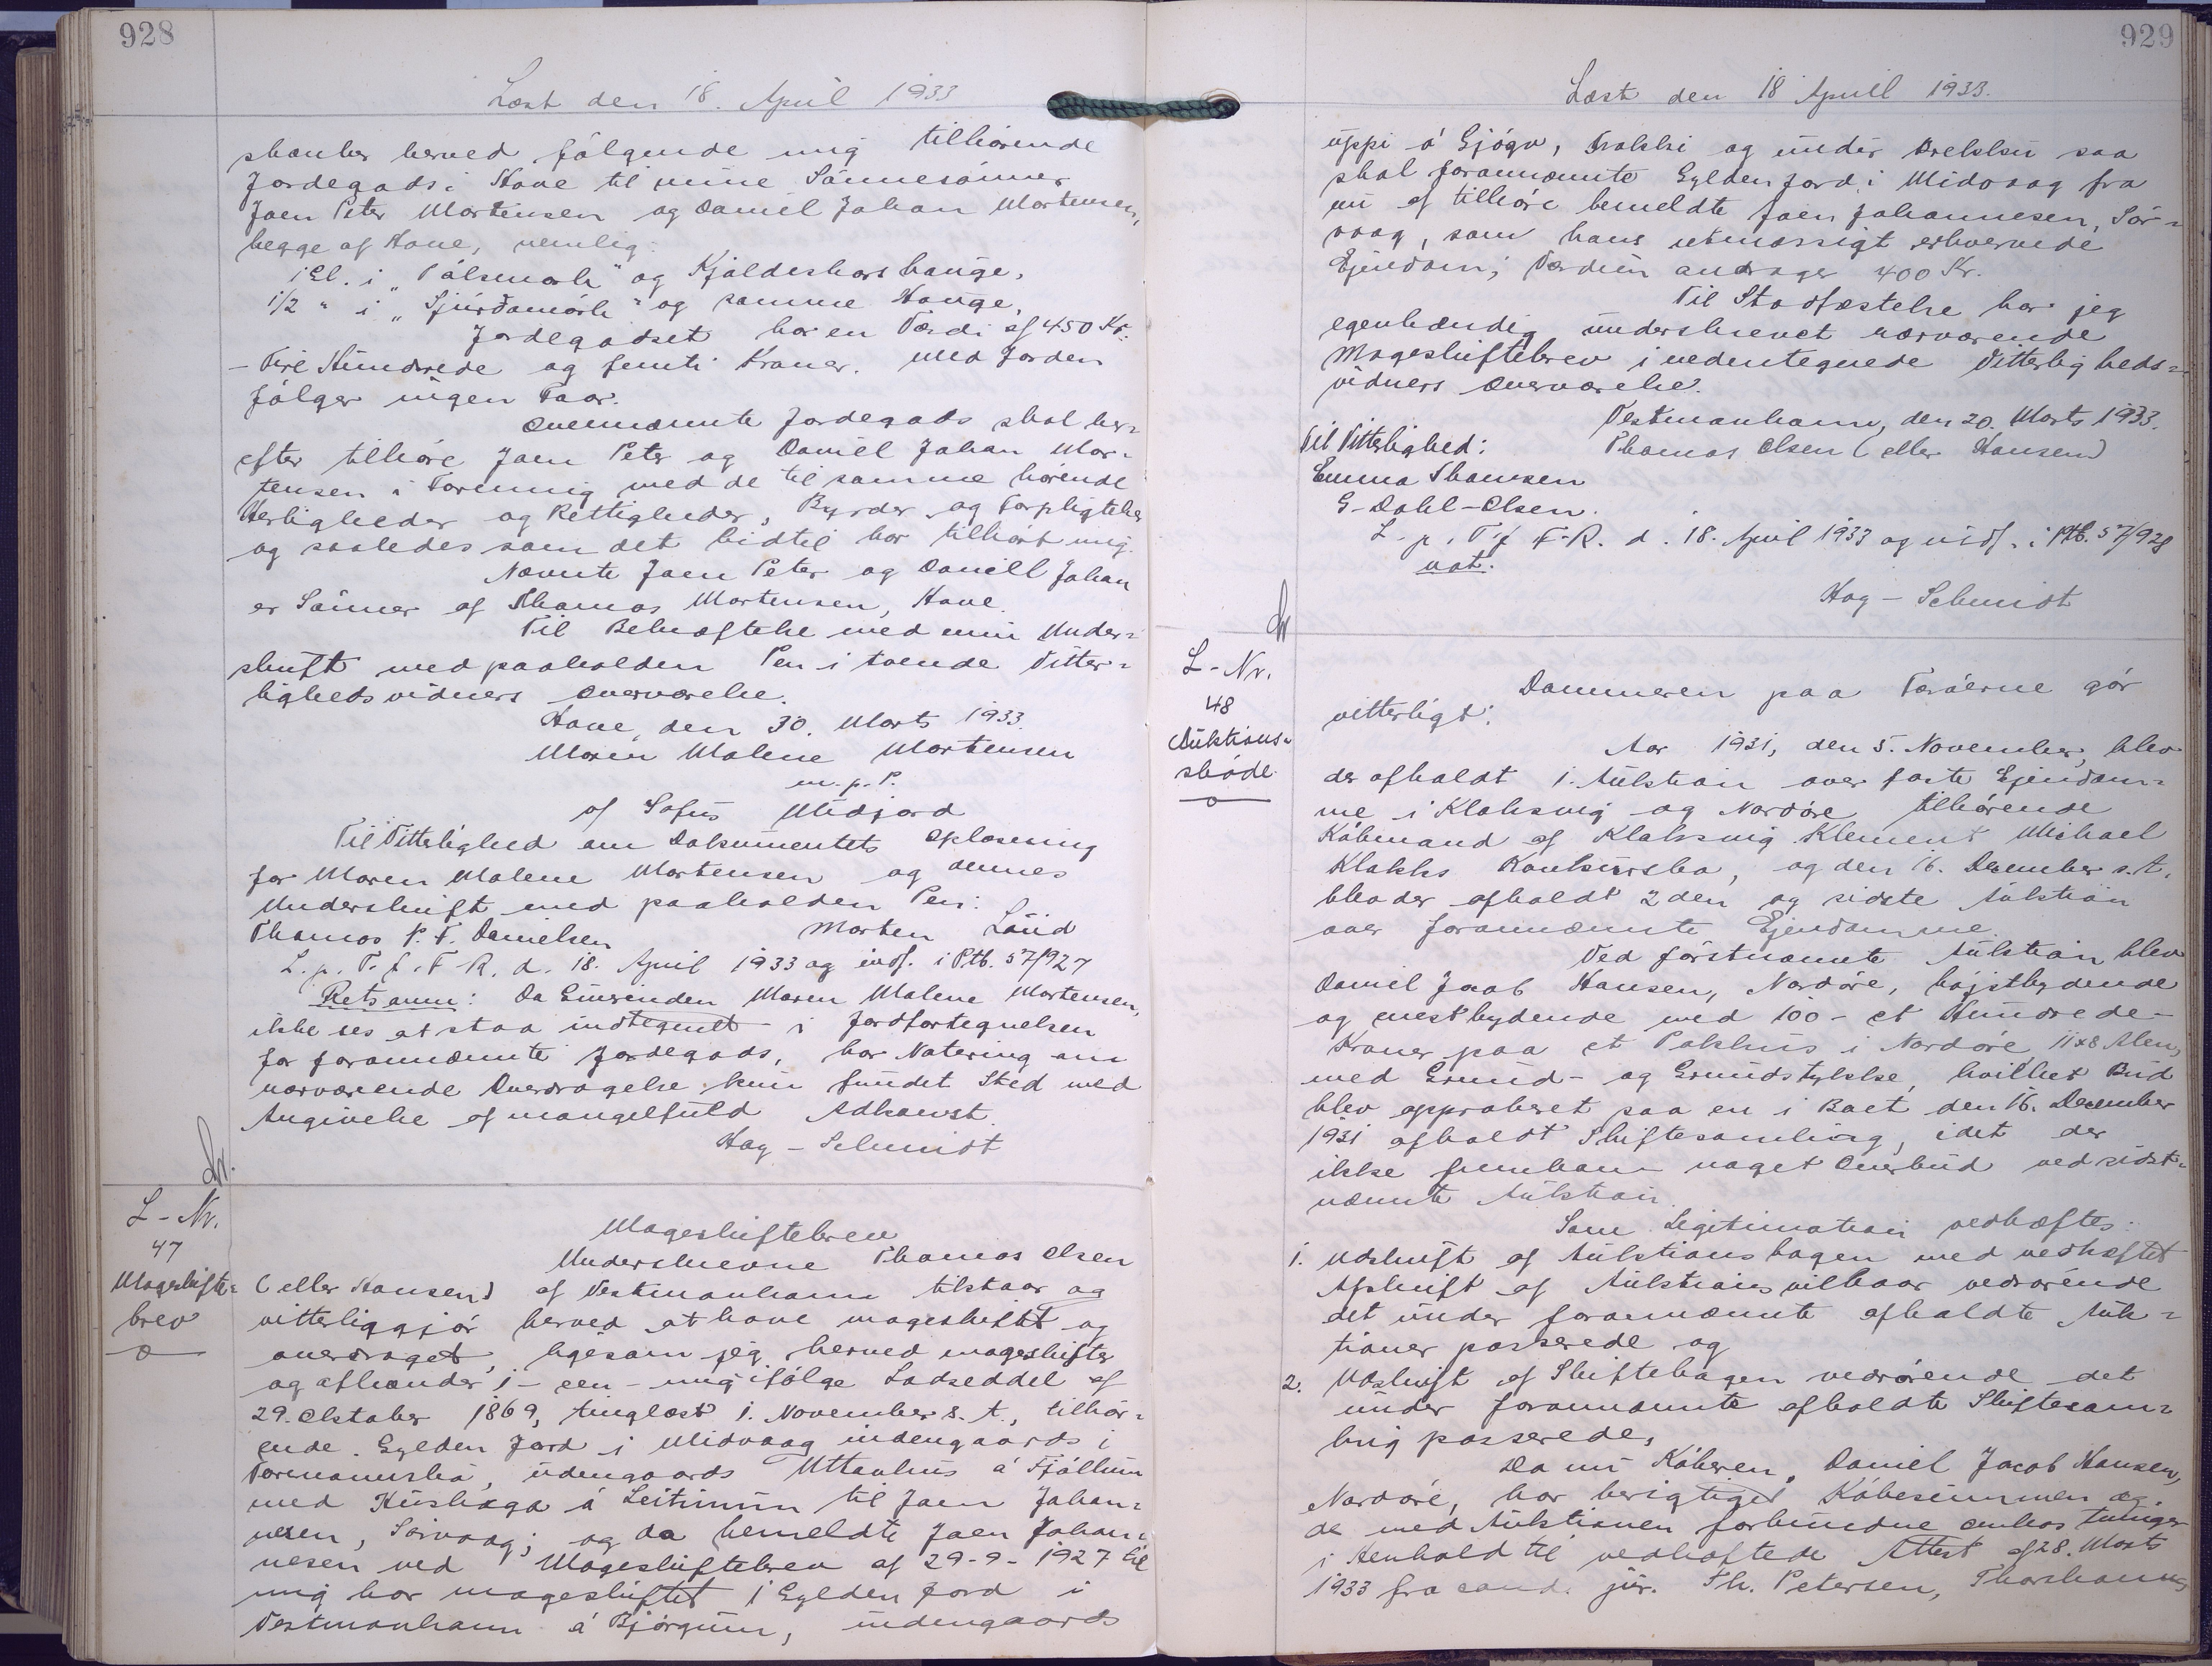 928
Læst den 18. April 1933
skænker herved følgende mig tilhørende
Jordegods i Hove til mine Sønnesønner
Joen Peter Mortensen og Daniel Johan Mortensen,
begge af Hove, nemlig:
1 Gl. i "Pálsmørk" og Kjøldeskorshauge,
1/2 " i "Sjúrðamørk" og samme Hauge,
Jordegodset har en Værdi af 450 Kr.
- Fire Hundrede og femti Kroner. Med Jorden
følger ingen Faar.
Ovennævnte Jordegods skal her=
efter tilhøre Joen Peter og Daniel Johan Mor=
tensen i Forening med de til samme hørende
Herligheder og Rettigheder, Byrder og Forpligtelser
og saaledes som det hidtil har tilhørt mig.
Nævnte Joen Peter og Daniell Johan
er Sønner af Thomas Mortensen, Hove.
Til Bekræftelse med min Under=
skrift med paaholden Pen i tvende Vitter=
lighedsvidners Overværelse.
Hove, den 30. Marts 1933.
Maren Malene Mortensen
m. p. P.
af Sofus Midjord
Til Vitterlighed om Dokumentets Oplæsning
for Maren Malene Mortensen og dennes
Underskrift med paaholden Pen:
Thomas P. F. Danielsen Morten Lúid
L. p. T. f. F. R. d. 18. April 1933 og indf. i Ptb. 57/927
Retsanm: Da Giverinden Maren Malene Mortensen,
ikke ses at staa indtegnet i Jordfortegnelsen
for forannævnte Jordegods, har Notering om
nærværende Overdragelse kun fundet Sted med
Angivelse af mangelfuld Adkomst.
Hag - Schmidt
L - Nr.
47
Mageskifte=
brev
Mageskiftebrev
Underskrevne Thomas Olsen
(eller Hansen) af Vestmanhavn tilstaar og
vitterliggjør herved at have mageskiftet og
overdraget, ligesom jeg herved mageskifter
og afhænder 1 - een - mig ifølge Lodseddel af
29. Oktober 1869, tinglæst 1. November s. A., tilhør=
ende Gylden Jord i Midvaag indengaards i
udengaards Uttanhus á Fjøllum
med Húshaga á Leitinum til Joen Johan=
nesen, Sørvaag; og da bemeldte Joen Johan=
nesen ved Mageskiftebrev af 29-9-1927 til
mig har mageskiftet 1 Gylden Jord i
Vestmanhavn á Bjørgum, indengaards
929
Læst den 18 April 1933.
uppi á Gjógv, og undir saa
skal forannævnte Gylden Jord i Midvaag fra
nu af tilhøre bemeldte Joen Johannesen, Sør=
vaag, som hans retmæssigt erhvervede
Ejendom; Værdien andrager 400 Kr.
Til Stadfæstelse har jeg
egenhændig underskrevet nærværende
Mageskiftebrev i nedentegnede Vitterligheds=
vidners Overværelse.
Vestmanhavn, den 20. Marts 1933.
Til Vitterlighed: Thomas Olsen (eller Hansen)
Emma Thomsen
G. Dahl-Olsen.
L. p. T. f. F. R. d. 18. April 1933 og indf. i Ptb. 57/928
not.
Hag - Schmidt
L - Nr.
48
Auktions=
skøde.
Dommeren paa Færøerne gør
vitterligt:
Aar 1931, den 5. November, blev
der afholdt 1. Auktion over faste Ejendom=
me i Klaksvig og Nordøre tilhørende
Købmand af Klaksvig Klement Michael
Klakks Konkursbo, og den 16. December s. A.
blev der afholdt 2den og sidste Auktion
over forannævnte Ejendomme.
Ved førstnævnte Auktion blev
Daniel Jacob Hansen, Nordøre, højstbydende
og mestbydende med 100 - et Hundrede -
Kroner paa et Pakhus i Nordøre 11x8 Alen,
med Grund- og Grundstykke, hvilket Bud
blev approberet paa en i Boet den 16. December
1931 afholdt Skiftesamling, idet der
ikke fremkom noget Overbud ved sidst=
nævnte Auktion.
Som Legitimation vedhæftes:
1. Udskrift af Auktionsbogen med vedhæftet
Afskrift af Auktionsvilkaar vedrørende
det under forannævnte afholdte Auk=
tioner passerede og
2. Udskrift af Skiftebogen vedrørende det
under forannævnte afholdte Skiftesam=
ling passerede,
Da nu Køberen, Daniel Jacob Hansen,
Nordøre, har berigtiget Købesummen og
de med Auktionen forbundne Omkostninger
i Henhold til vedhæftede Attest af 28. Marts
1933 fra cand. jur. Th. Petersen, Thorshavn,